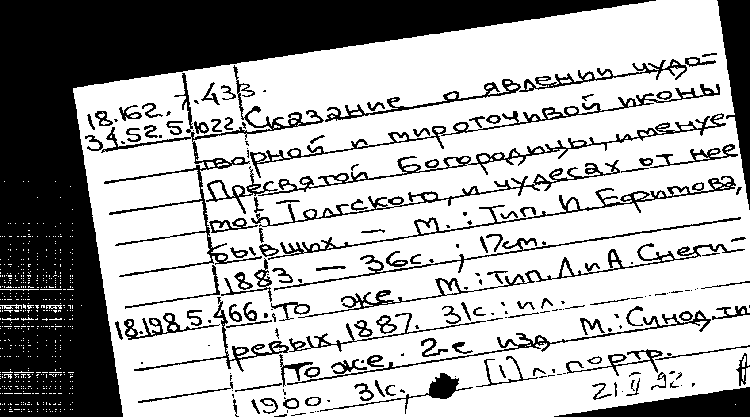 18.162.7.433.
34.52.5.1022. Сказание о явлении чудо=
творной и мироточивой иконы
Пресвятой Богородицы, именуе-
мой Толгскою, и чудесах от нее
бывших. – М.: Тип. И. Ефимова,
1883. – 36с. ; 17см.
18.198.5.466. То же. М.: Тип. Л. и А. Снеги-
ревых, 1887. 31с.: ил.
То же. 2-е изд. М.: Синод. ти
1900. 31с., [1] л. портр.
21 II 92.